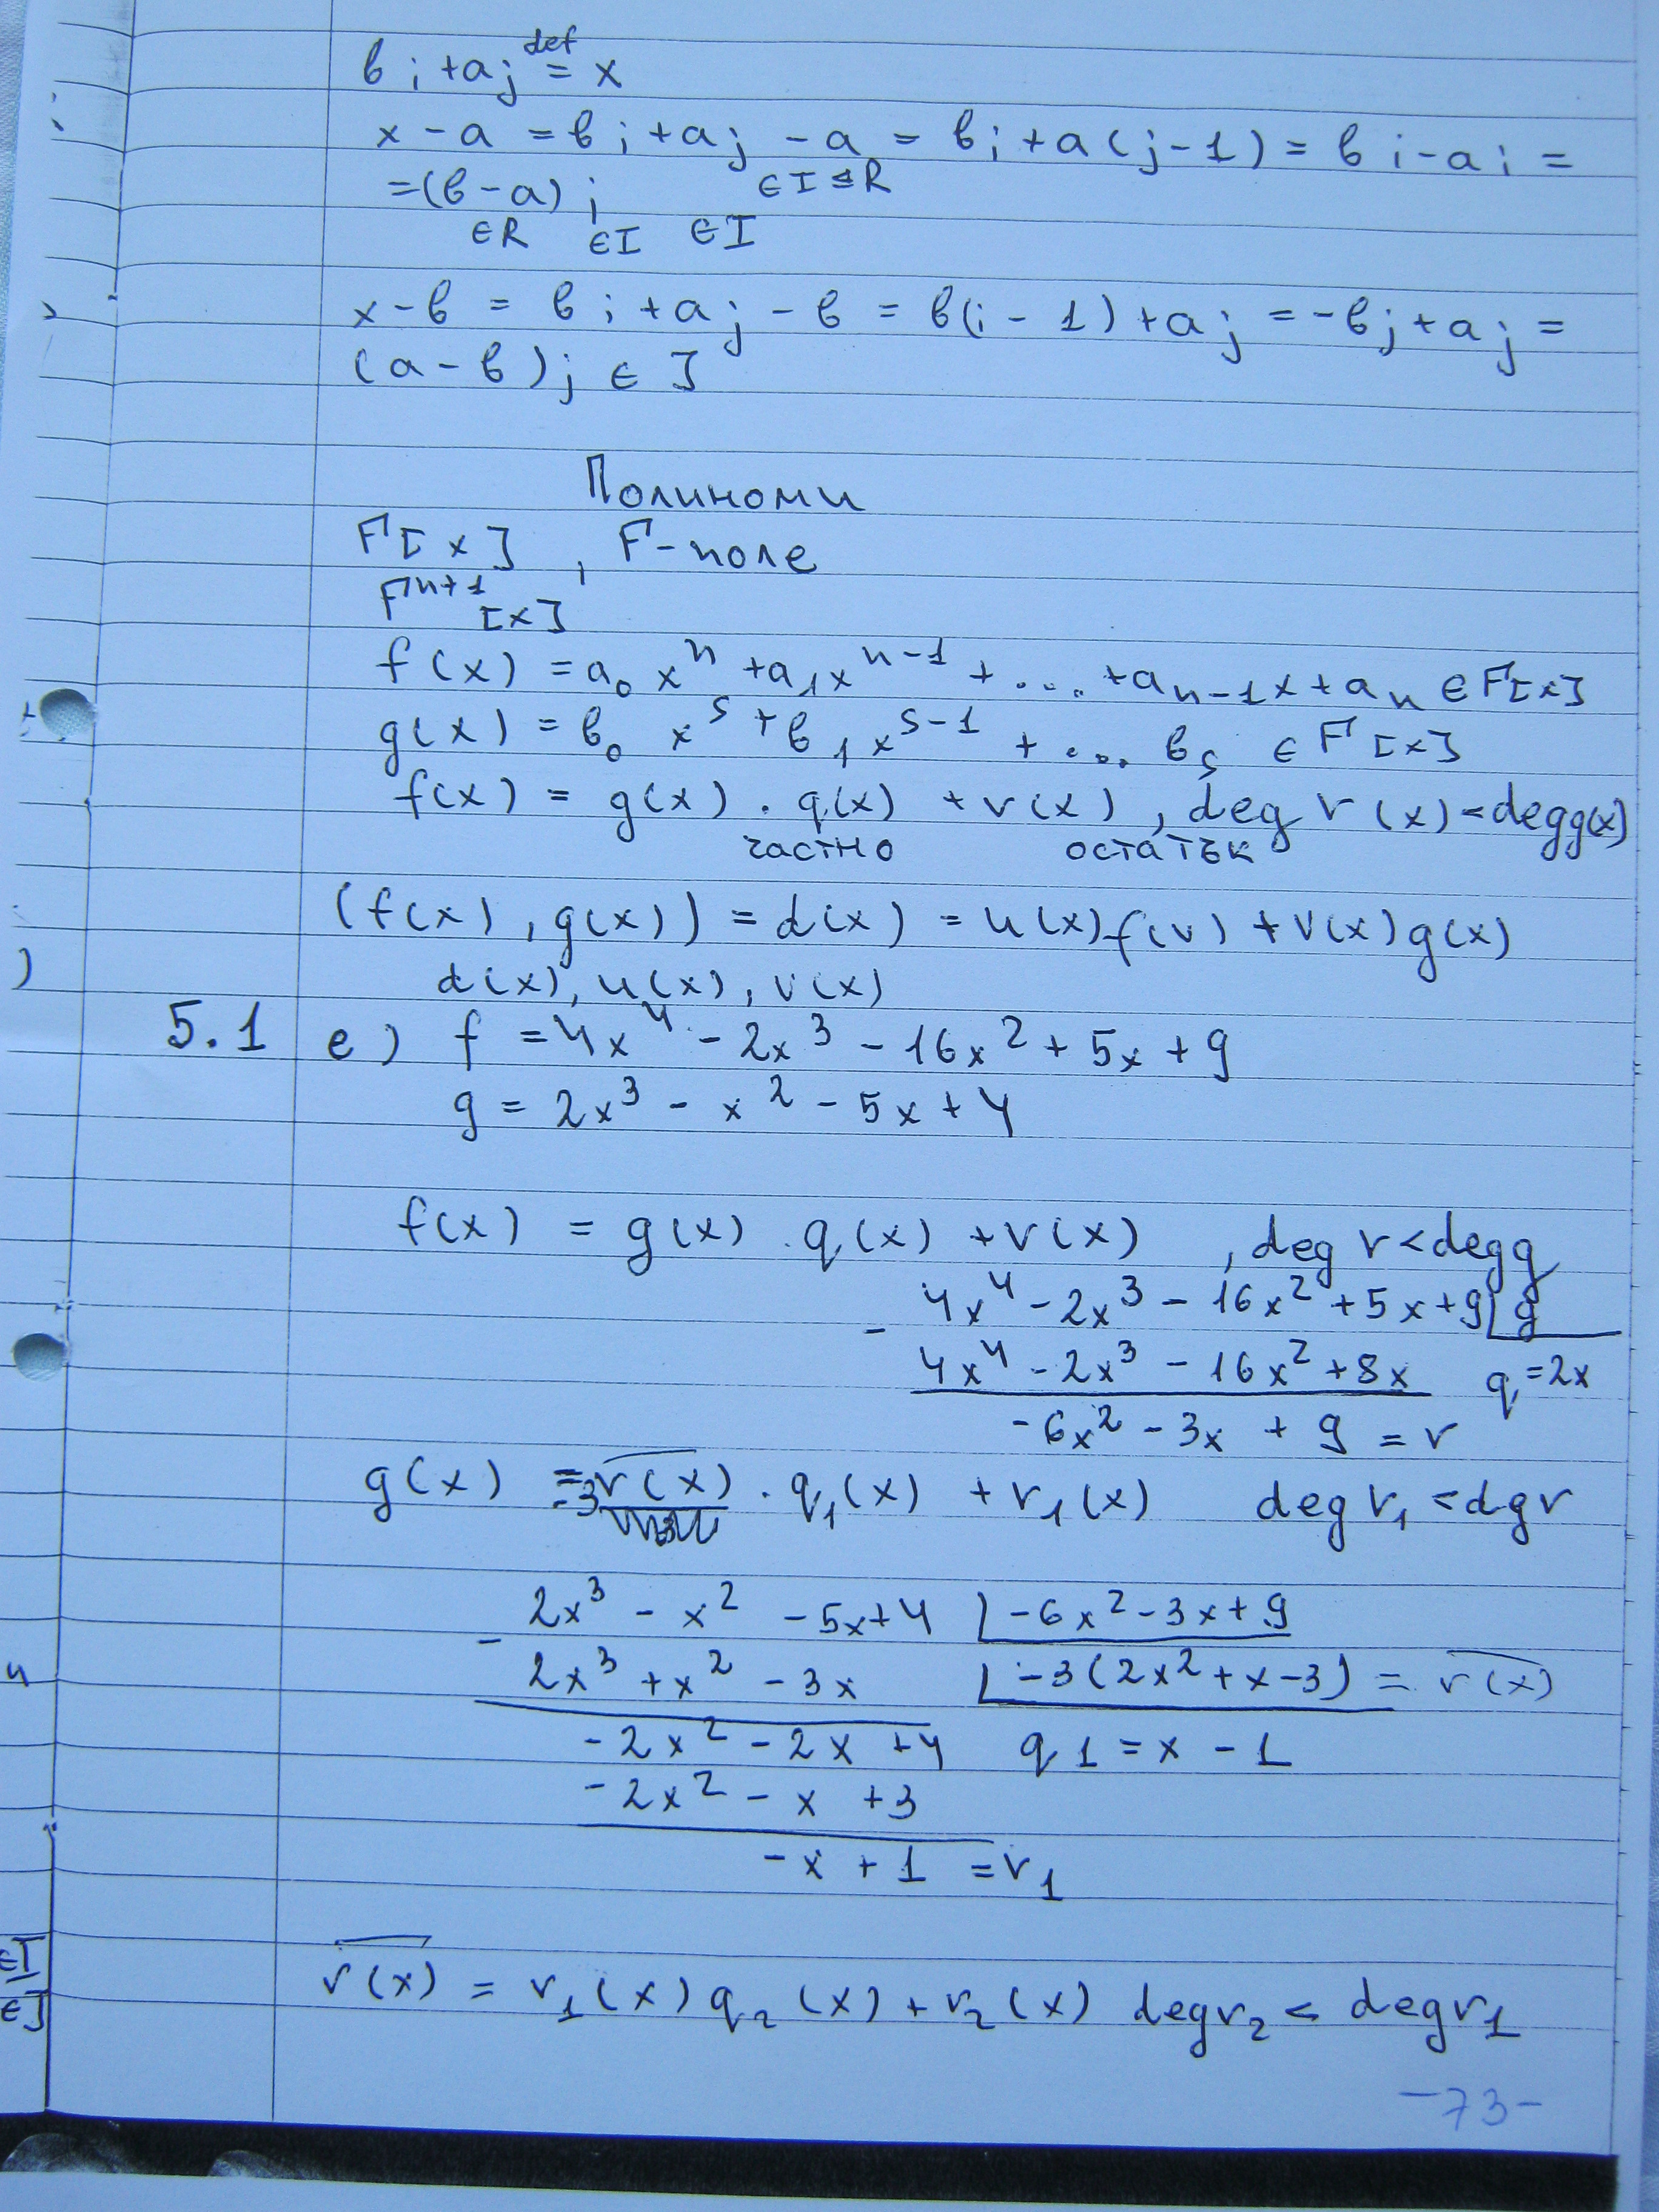 вi + aj def= x
x - a = вi + aj - a = вi + a(j - 1) = вi - ai =
∈ I ⊴ R
= (в - a) i
∈R ∈I ∈I
x - в = вi + aj - в = в(i - 1) + aj = -вj + aj =
(a - в)j ∈ J
Полиноми
F[x], F - поле
Fⁿ⁺¹[x]
f(x) = a₀xⁿ + a₁xⁿ⁻¹ + .... + aₙ₋₁x + aₙ ∈ F[x]
g(x) = в₀ xˢ + в₁xˢ⁻¹ + .... вₛ ∈ F[x]
f(x) = g(x) . q(x) + r(x), deg r(x) < deg g(x)
частно остатък
(f(x), g(x)) = d(x) = u(x)f(v) + v(x)g(x)
d(x), u(x), v(x)
5.1 е) f = 4x⁴ - 2x³ - 16x² + 5x + 9
g = 2x³ - x² - 5x + 4
f(x) = g(x) . q(x) + r(x), deg r < deg g
4x⁴ - 2x³ - 16x² + 5x + 9 | g
-
4x⁴ - 2x³ - 16x² + 8x q = 2x
-6x² - 3x + 9 = r
g(x) = -3r(x) . q₁(x) + r₁(x) deg r₁ < dgr
2x³ - x² - 5x + 4 | -6x² - 3x + 9
-
2x³ + x² - 3x | -3(2x² + x - 3) = r(x)
-2x² - 2x + 4 q1 = x - 1
-2x² - x + 3
-x + 1 = r₁
r(x) = r₁(x) q₂(x) + r₂(x) deg r₂ < deg r₁
∈I
∈J
-73-